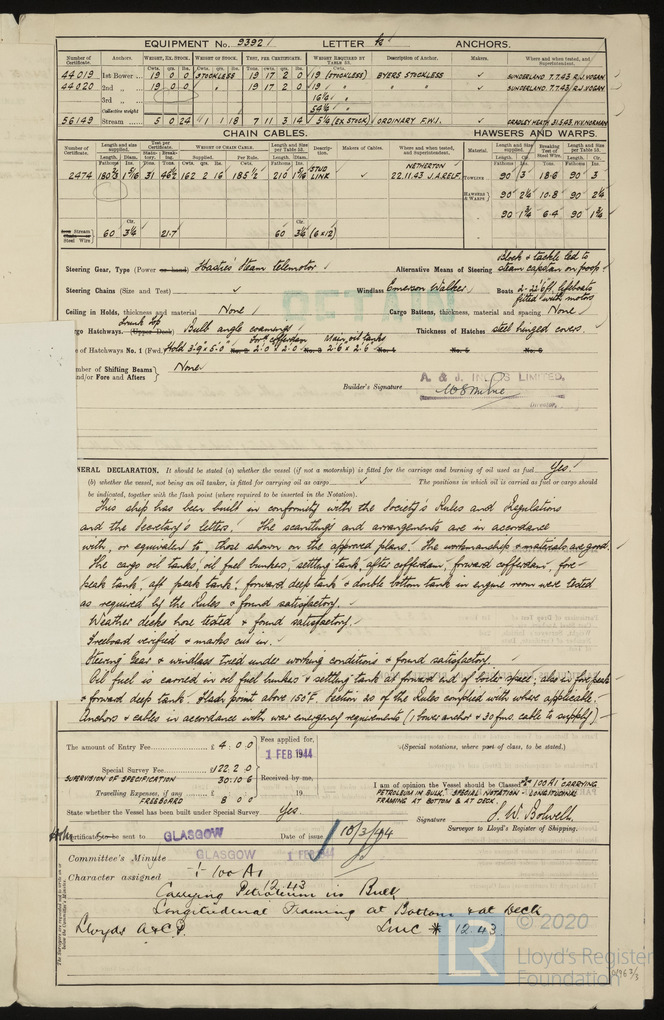 EQUIPMENT No. 9392 LETTER ANCHORS.
Number of Certificate. Anchors. WEIGHT, EX. STOCK. WEIGHT OF STOCK. TEST, PER CERTIFICATE. WEIGHT REQUIRED BY TABLE 53. Description of Anchor. Makers. Where and when tested, and Superintendent.
44019 1st Bower 19 0 0 STOCKLESS 19 17 2 0 19 (STOCKLESS) BYERS STOCKLESS ✓ SUNDERLAND 7.7.43 R.J. VOGAN
44020 2nd „ 19 0 0 " 19 17 2 0 19 " " " ✓ SUNDERLAND 7.7.43 R.J. VOGAN
3rd „ 16¼ "
Collective weight 54¼ "
56149 Stream 5 0 24 1 1 18 7 11 3 14 5¼ (EX STOCK) ORDINARY F.W.I. ✓ CRADLEY HEATH 31.5.43. W.V. NORMAN
CHAIN CABLES. HAWSERS AND WARPS.
Number of Certificate. Length and size supplied. Test per Certificate. WEIGHT OF CHAIN CABLE. Length and Size per Table 53. Description. Makers of Cables. Where and when tested, and Superintendent. Material. Length and Size supplied. Breaking Test of Steel Wire. Length and Size per Table 53.
NETHERTON
2474 180⅜ 1 5/16 31 46½ 162 2 16 185½ 210 1 5/16 STUD LINK ✓ 22.11.43 J.A. RELF. TOWLINE 90 3 18.6 90 3
HAWSERS & WARPS 90 2¼ 10.8 90 2¼
90 1¾ 6.4 90 1¾
Stream Steel Wire 60 3¼ 21.7 60 3¼ (6x12)
Steering Gear, Type (Power or hand) Hastie's Steam telemotor Alternative Means of Steering Block & tackle led to steam capstan on poop
Steering Chains (Size and Test) ✓ Windlass Emerson Walker Boats 2-22'6 ft. lifeboats fitted with motors
Ceiling in Holds, thickness and material None Cargo Battens, thickness, material and spacing None
Trunk Top
Cargo Hatchways. (Upper Deck) Bulb angle coamings Thickness of Hatches steel hinged covers.
of Hatchways No. 1 (Fwd.) Hold 3'.9" x 5'.0" No. 2 Forwd cofferdam 2'.0" x 2'.0" No. 3 Main oil tanks 2'.6" x 2'.6" No. 4 No. 5 No. 6
Number of Shifting Beams and/or Fore and Afters } None
Builder's Signature A. & J. INGLIS LIMITED.
GENERAL DECLARATION. It should be stated (a) whether the vessel (if not a motorship) is fitted for the carriage and burning of oil used as fuel Yes.
(b) whether the vessel, not being an oil tanker, is fitted for carrying oil as cargo ✓ The positions in which oil is carried as fuel or cargo should
be indicated, together with the flash point (where required to be inserted in the Notation).
This ship has been built in conformity with the Society's Rules and Regulations
and the Secretary's letters. The scantlings and arrangements are in accordance
with, or equivalent to, those shown on the approved plans. The workmanship & materials are good.
The cargo oil tanks, oil fuel bunkers, settling tank, after cofferdam, forward cofferdam, fore-
peak tank, aft peak tank, forward deep tank & double bottom tank in engine room were tested
as required by the Rules & found satisfactory.
Weather decks hose tested & found satisfactory.
Freeboard verified & marks cut in.
Steering Gear & windlass tried under working conditions & found satisfactory.
Oil fuel is carried in oil fuel bunkers & settling tank at forward end of boiler space; also in fore peak
& forward deep tank. Flash point above 150°F. Section 20 of the Rules complied with where applicable.
Anchors & cables in accordance with war emergency requirements (1 bower anchor & 30 fms. cable to supply)
The amount of Entry Fee £ 4 . 0 . 0 Fees applied for,
1 FEB 1944
Special Survey Fee £122 . 2 . 0
SUPERVISION OF SPECIFICATION 30.10.6 Received by me,
Travelling Expenses, if any £ : : 19
FREEBOARD 8 0 0
(Special notations, where part of class, to be stated.)
I am of opinion the Vessel should be Classed 100 A1 "CARRYING
PETROLEUM IN BULK." SPECIAL NOTATION - LONGITUDINAL
FRAMING AT BOTTOM & AT DECK.
State whether the Vessel has been built under Special Survey Yes.
Signature
Surveyor to Lloyd's Register of Shipping.
Certificate to be sent to GLASGOW Date of issue 10/3/44
Committee's Minute GLASGOW 1 FEB 1944
Character assigned + 100 A1
12.43
Carrying Petroleum in Bulk
Longitudinal Framing at Bottom & at Deck
Lloyds A & C P. LMC * 12.43
© 2020
LR
Lloyd's Register
Foundation